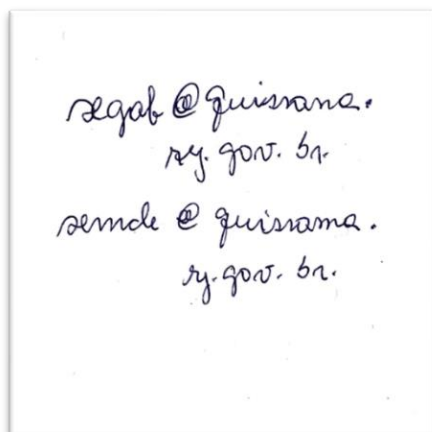 segab @ quissama.
rj. gov. br.
semde @ quissama.
rj. gov. br.